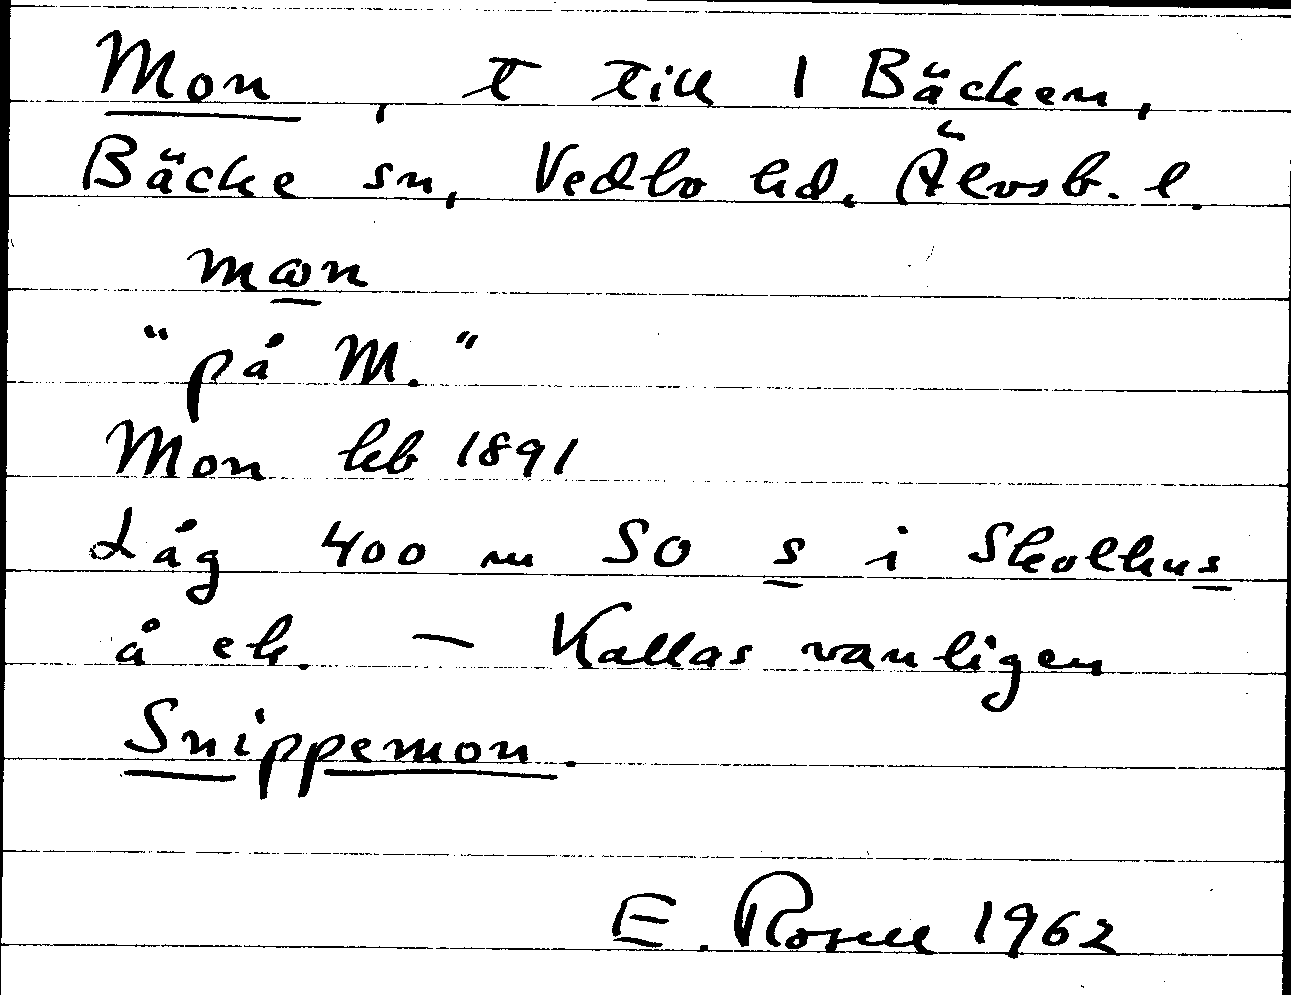 Mon, t till 1 Bäcken,
Bäcke sn, Vedbo hd. Älvsb. l.
mɷn
"på M."
Mon kb 1891
Låg 400 m SO s i Skolhus
å ek. – Kallas vanligen
Snippemon.
E. Rosell 1962